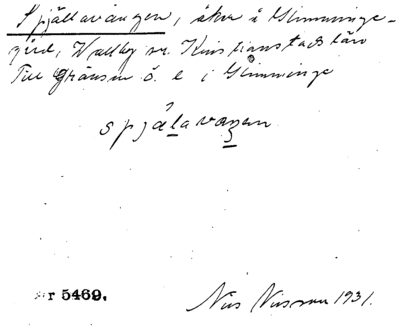 Spjällavången, åker i Glimminge-
gård, Wallby sn. Kristianstads län
Till gränsen ö. e i Glimminge
spjälavaŋen
nr 5469.
Nils Nilsson 1931.